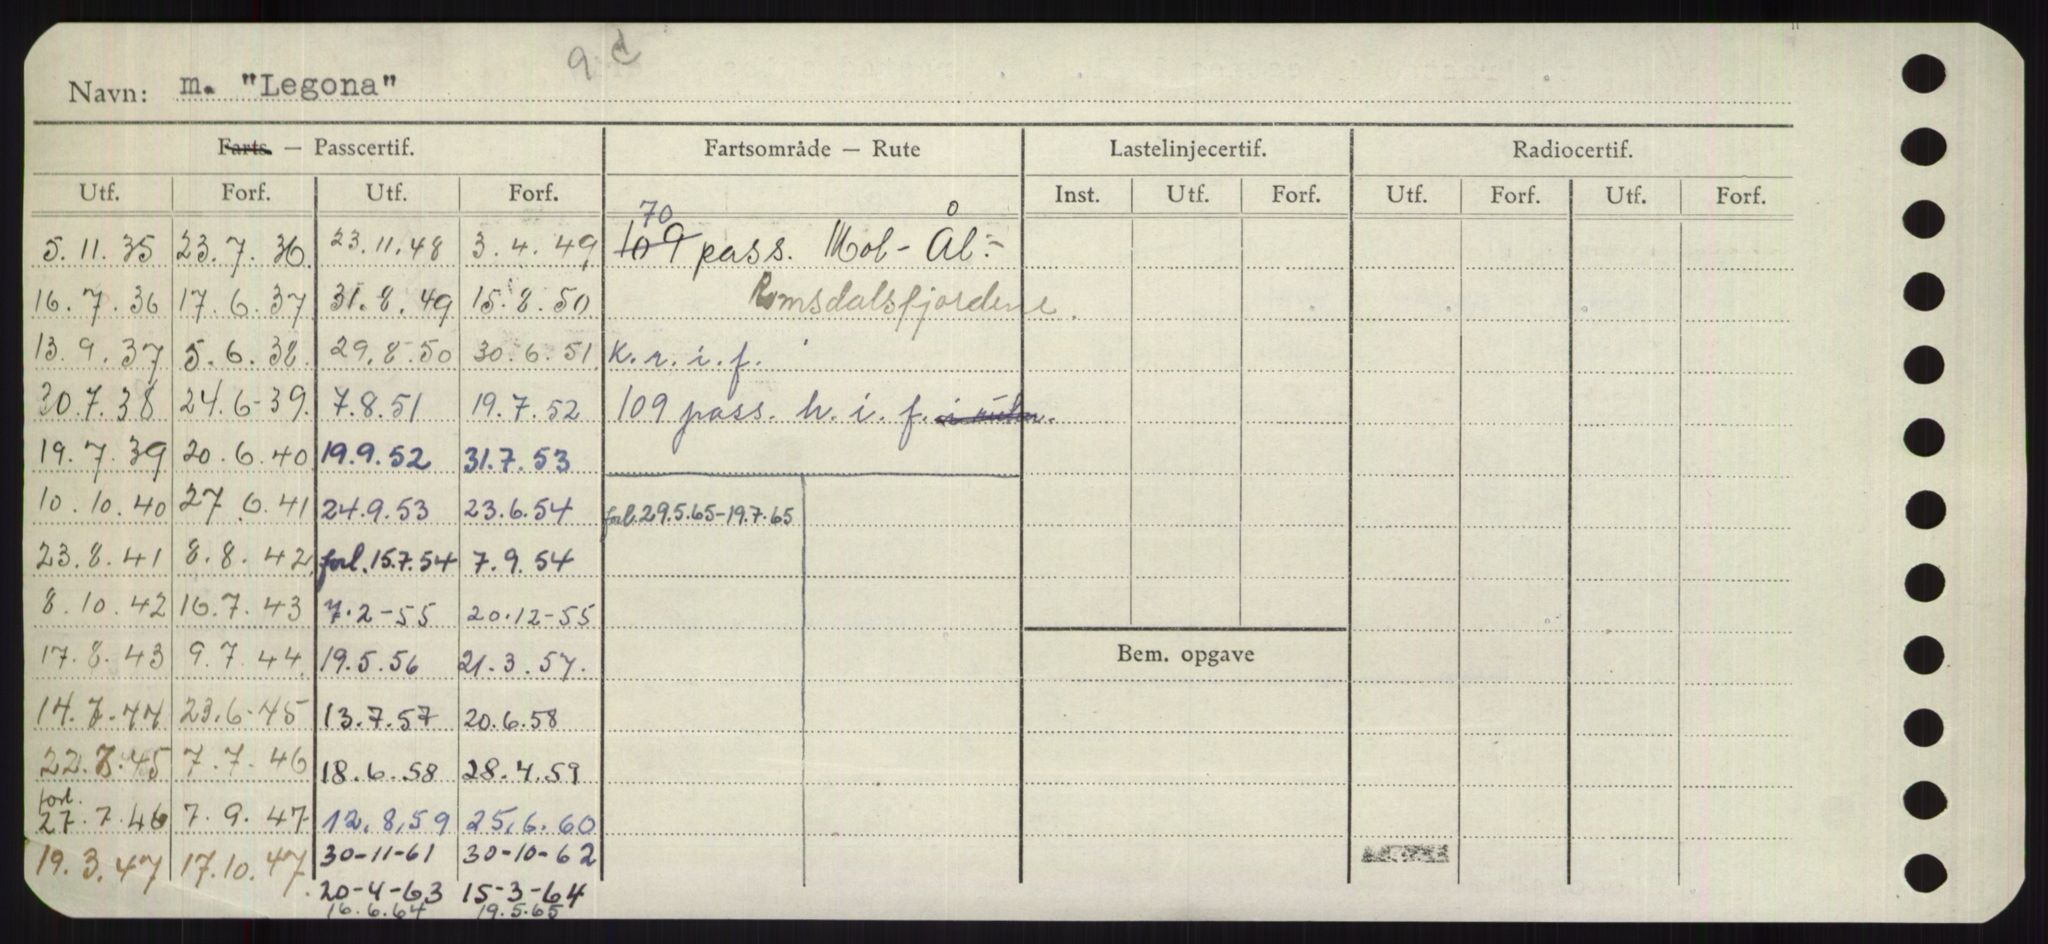 9 d
Navn: m. "Legona"
Farts. — Passcertif. Fartsområde — Rute Lastelinjecertif. Radiocertif.
Utf. Forf. Utf. Forf. Inst. Utf. Forf. Utf. Forf. Utf. Forf.
70
5.11.35 23.7.36. 23.11.48 3.4.49 109 pass. Mol-Ål.-
16.7.36 17.6.37 31.8.49 15.8.50 Romsdalsfjordene.
13.9.37 5.6.38. 29.8.50 30.6.51. K.r.i.f.
30.7.38 24.6-39. 7.8.51 19.7.52 109 pass. h.i.f.
19.7.39 20.6.40 19.9.52 31.7.53
10.10.40 27.6.41 24.9.53 23.6.54 forl.29.5.65-19.7.65
23.8.41 8.8.42. forl.15.7.54 7.9.54
8.10.42 16.7.43 7.2-55 20.12-55
17.8.43 9.7.44. 19.5.56 21.3.57. Bem. opgave
14.7.44 23.6.45 13.7.57 20.6.58
22.8.45 7.7.46 18.6.58 28.4.59
forl.
27.7.46 7.9.47 12.8.59 25.6.60
19.3.47 17.10.47. 30-11-61 30-10-62
20-4-63 15-3-64
16.6.64 19.5.65